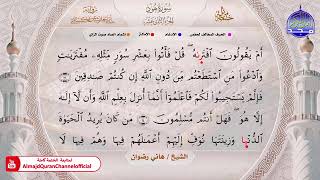 سورة هود
أَمْ يَقُولُونَ ٱفْتَرَىٰهُ ۖ قُلْ فَأْتُوا۟ بِعَشْرِ سُوَرٍ مِّثْلِهِۦ مُفْتَرَيَٰتٍ
وَٱدْعُوا۟ مَنِ ٱسْتَطَعْتُم مِّن دُونِ ٱللَّهِ إِن كُنتُمْ صَٰدِقِينَ
فَإِلَّمْ يَسْتَجِيبُوا۟ لَكُمْ فَٱعْلَمُوٓا۟ أَنَّمَآ أُنزِلَ بِعِلْمِ ٱللَّهِ وَأَن لَّآ إِلَٰهَ
إِلَّا هُوَ ۖ فَهَلْ أَنتُم مُّسْلِمُونَ مَن كَانَ يُرِيدُ ٱلْحَيَوٰةَ
ٱلدُّنْيَا وَزِينَتَهَا نُوَفِّ إِلَيْهِمْ أَعْمَٰلَهُمْ فِيهَا وَهُمْ فِيهَا لَا
الشيخ / هاني رضوان
AlmajdQuranChannelofficial